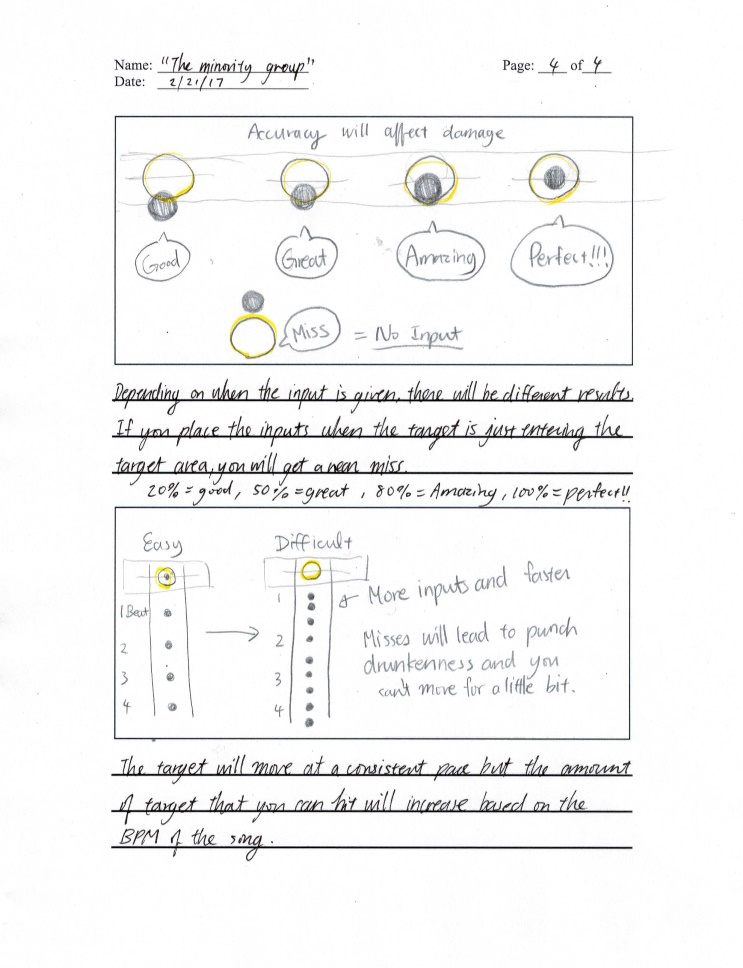 Name: "The minority group"
Page: 4 of 4
Date: 2/21/17
Accuracy will affect damage
Good
Great
Amazing
Perfect!!!
Miss = No Input
Depending on when the input is given, there will be different results.
If you place the inputs when the target is just entering the
target area, you will get a near miss.
20% = good, 50% = great, 80% = Amazing, 100% = perfect!!
Easy
Difficult
1 Beat
2
3
4
1
2
3
4
More inputs and faster
Misses will lead to punch
drunkenness and you
can't move for a little bit.
The target will move at a consistent pace but the amount
of target that you can hit will increase based on the
BPM of the song.